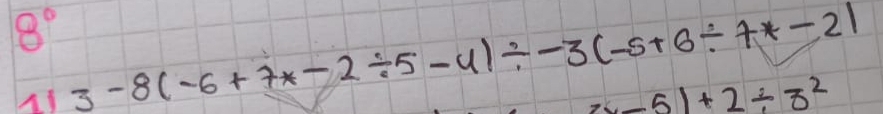 8°
1) 3 - 8(-6 + 7* - 2 ÷ 5 - 4) ÷ - 3(-5 + 6 ÷ 7* - 2)
- 5) + 2 ÷ 3²